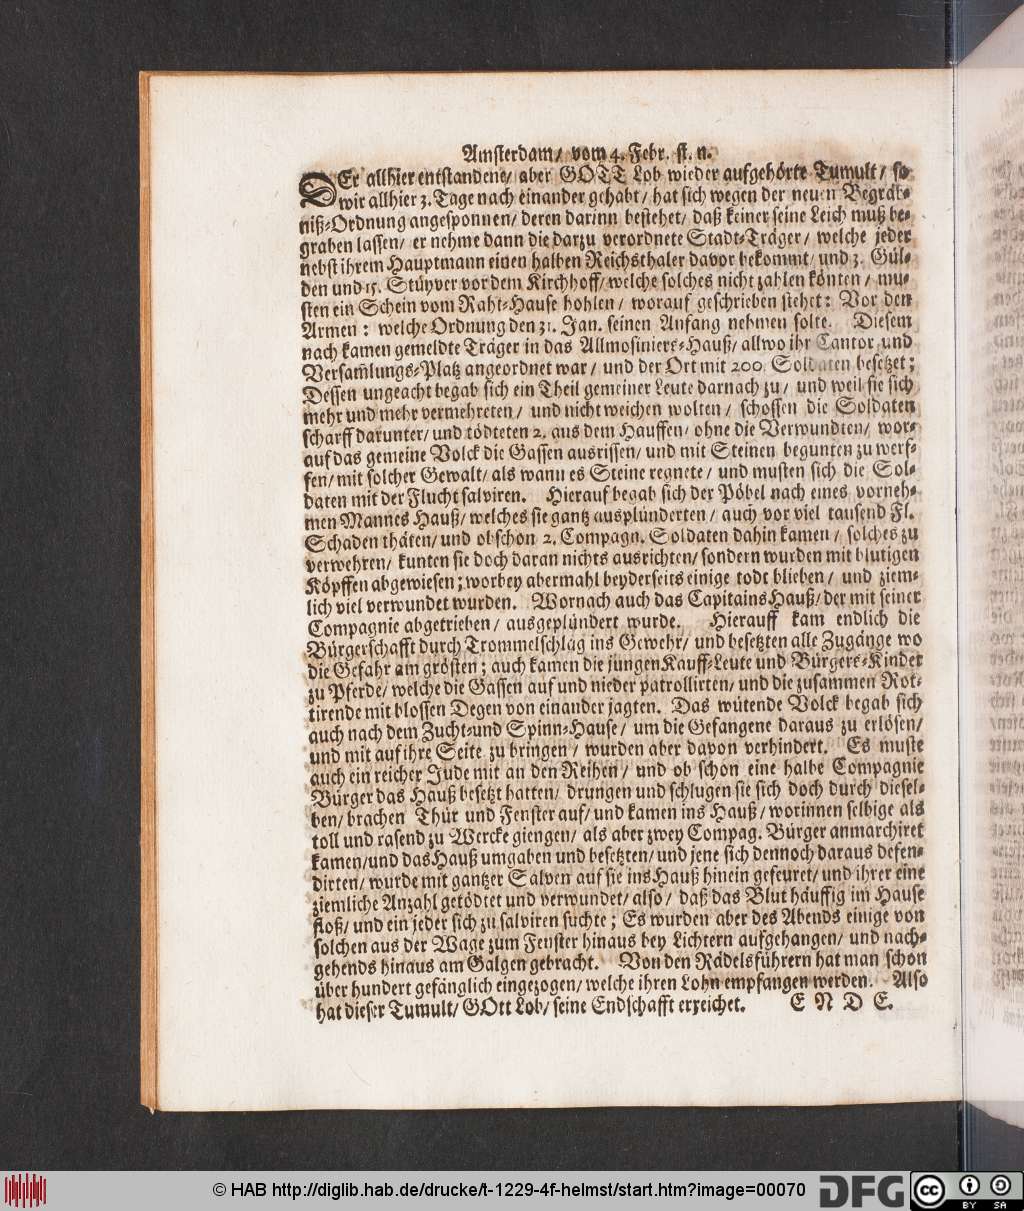 Amsterdam/ vom 4. Febr. st. n.
DEr allhier entstandene/ aber GOTT Lob wieder aufgehörte Tumult/ so
wir allhier 3. Tage nach einander gehabt/ hat sich wegen der neuen Begräb-
niß-Ordnung angesponnen/ deren darinn bestehet/ daß keiner seine Leich muß be-
graben lassen/ er nehme dann die darzu verordnete Stadt-Träger/ welche jeder
nebst ihrem Hauptmann einen halben Reichsthaler davor bekommt/ und 3. Gül-
den und 15. Stüyver vor dem Kirchhoff/ welche solches nicht zahlen könten/ mu-
sten ein Schein vom Raht-Hause hohlen/ worauf geschrieben stehet: Vor den
Armen: welche Ordnung den 31. Jan. seinen Anfang nehmen solte. Diesem
nach kamen gemeldte Träger in das Allmosiniers-Hauß/ allwo ihr Cantor und
Versam̃lungs-Platz angeordnet war/ und der Ort mit 200. Soldaten besetzet;
Dessen ungeacht begab sich ein Theil gemeiner Leute darnach zu/ und weil sie sich
mehr und mehr vermehreten/ und nicht weichen wolten/ schossen die Soldaten
scharff darunter/ und tödteten 2. aus dem Hauffen/ ohne die Verwundten/ wor-
auf das gemeine Volck die Gassen ausrissen/ und mit Steinen begunten zu werf-
fen/ mit solcher Gewalt/ als wann es Steine regnete/ und musten sich die Sol-
daten mit der Flucht salviren. Hierauf begab sich der Pöbel nach eines vorneh-
men Mannes Hauß/ welches sie gantz ausplünderten/ auch vor viel tausend Fl.
Schaden thäten/ und obschon 2. Compagn. Soldaten dahin kamen/ solches zu
verwehren/ kunten sie doch daran nichts ausrichten/ sondern wurden mit blutigen
Köpffen abgewiesen; worbey abermahl beyderseits einige todt blieben/ und ziem-
lich viel verwundet wurden. Wornach auch das Capitains Hauß/ der mit seiner
Compagnie abgetrieben/ ausgeplündert wurde. Hierauff kam endlich die
Bürgerschafft durch Trommelschlag ins Gewehr/ und besetzten alle Zugänge wo
die Gefahr am grösten; auch kamen die jungen Kauff-Leute und Bürgers-Kinder
zu Pferde/ welche die Gassen auf und nieder patrollirten/ und die zusammen Rot-
tirende mit blossen Degen von einander jagten. Das wütende Volck begab sich
auch nach dem Zucht-und Spinn-Hause/ um die Gefangene daraus zu erlösen/
und mit auf ihre Seite zu bringen/ wurden aber davon verhindert. Es muste
auch ein reicher Jude mit an den Reihen/ und ob schon eine halbe Compagnie
Bürger das Hauß besetzt hatten/ drungen und schlugen sie sich doch durch diesel-
ben/ brachen Thür und Fenster auf/ und kamen ins Hauß/ worinnen selbige als
toll und rasend zu Wercke giengen/ als aber zwey Compag. Bürger anmarchiret
kamen/ und das Hauß umgaben und besetzten/ und jene sich dennoch daraus defen-
dirten/ wurde mit gantzer Salven auf sie ins Hauß hinein gefeuret/ und ihrer eine
ziemliche Anzahl getödtet und verwundet/ also/ daß das Blut häuffig im Hause
floß/ und ein jeder sich zu salviren suchte; Es wurden aber des Abends einige von
solchen aus der Wage zum Fenster hinaus bey Lichtern aufgehangen/ und nach-
gehends hinaus am Galgen gebracht. Von den Rädelsführern hat man schon
über hundert gefänglich eingezogen/ welche ihren Lohn empfangen werden. Also
hat dieser Tumult/ GOtt Lob/ seine Endschafft erreichet. E N D E.
© HAB http://diglib.hab.de/drucke/t-1229-4f-helmst/start.htm?image=00070
DFG
cc
BY SA